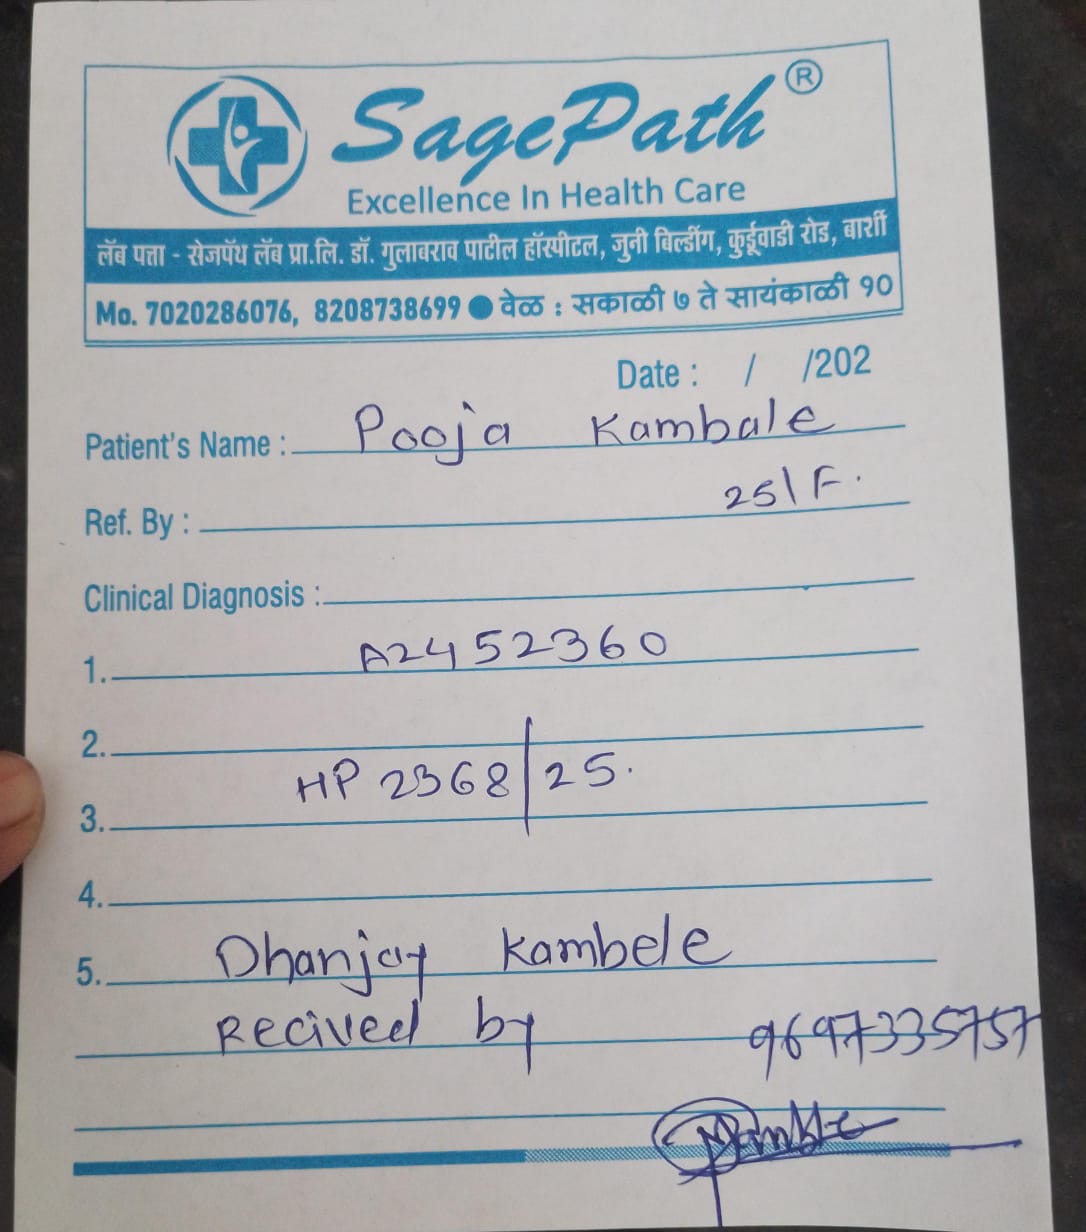 SagePath ®
Excellence In Health Care
लॅब पत्ता - सेजपॅथ लॅब प्रा.लि. डॉ. गुलाबराव पाटील हॉस्पीटल, जुनी बिल्डींग, कुर्डूवाडी रोड, बार्शी
Mo. 7020286076, 8208738699 ● वेळ : सकाळी ७ ते सायंकाळी १०
Date : / /202
Patient's Name : Pooja Kambale
25\F.
Ref. By :
Clinical Diagnosis :
1. A2452360
2.
HP 2368/25.
3.
4.
5. Dhanjay Kambele
Recived by 9697335757